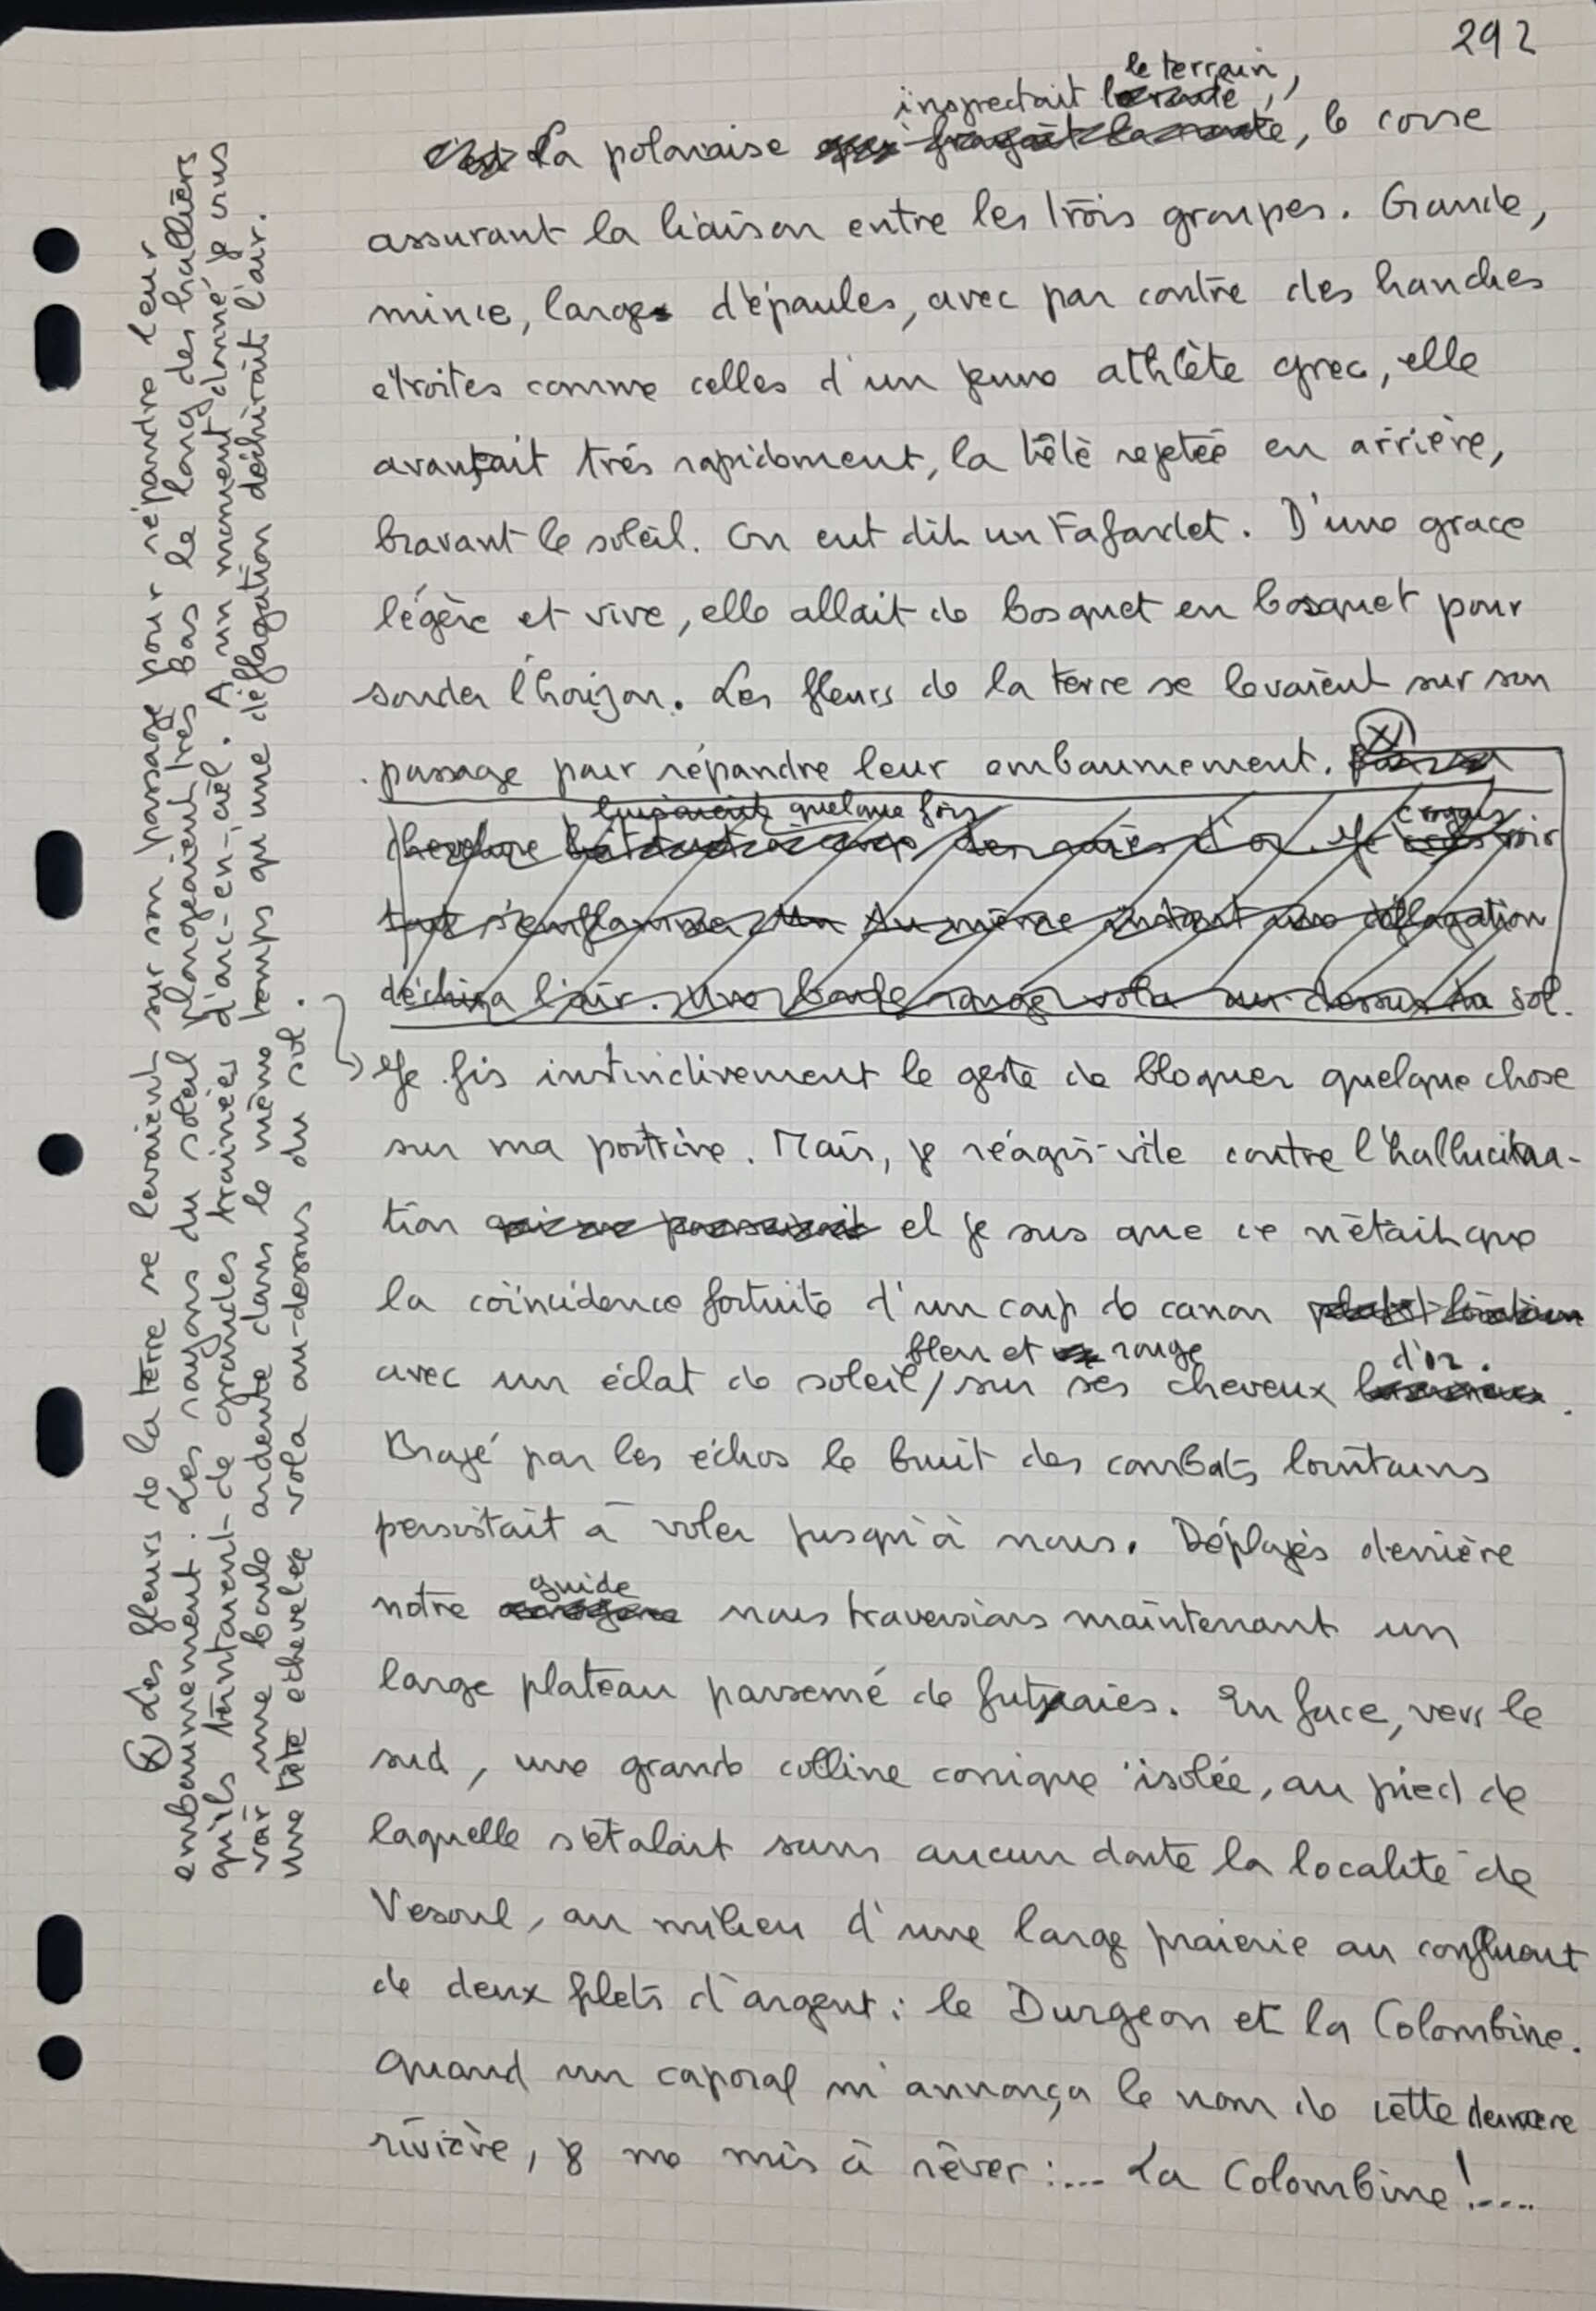 292
le terrain,
inspectait la route,
C'est La polonaise qui frayait la route, le corse
assurant la liaison entre les trois groupes. Grande,
mince, large d'épaules, avec par contre des hanches
étroites comme celles d'un jeune athlète grec, elle
avançait très rapidement, la tête rejetée en arrière,
bravant le soleil. On eut dit un Fafardet. D'une grace
légère et vive, elle allait de bosquet en bosquet pour
sonder l'horizon. Les fleurs de la terre se levaient sur son
passage pour répandre leur embaumement. (X)
luisaient quelque fois croyais
chevelure des airs d'or. Je voir
tout s'enflammer. Au même instant une déflagration
déchira l'air. Une boule rouge vola au-dessus du sol.
Je fis instinctivement le geste de bloquer quelque chose
sur ma poitrine. Mais, je réagis vite contre l'hallucina-
tion qui me poursuivait et je sus que ce n'était que
la coïncidence fortuite d'un coup de canon
bleu et rouge d'or.
avec un éclat de soleil, sur ses cheveux
Brayé par les échos le bruit des combats lointains
persistait à voler jusqu'à nous. Déployés derrière
guide
notre nous traversions maintenant un
large plateau parsemé de futaies. En face, vers le
sud, une grande colline conique isolée, au pied de
laquelle s'étalait sans aucun doute la localité de
Vesoul, au milieu d'une large prairie au confluent
de deux filets d'argent : le Durgeon et la Colombine.
Quand un caporal m'annonça le nom de cette dernière
rivière, je me mis à rêver :... La Colombine !....
(X) Les fleurs de la terre se levaient sur son passage pour répandre leur
embaumement. Les rayons du soleil plongeaient très bas le long des halliers
qu'ils teintaient de grandes trainées d'arc-en-ciel. A un moment donné je crus
voir une boule ardente dans le même temps qu'une déflagration déchirait l'air.
une tête échevelée vola au-dessus du sol.